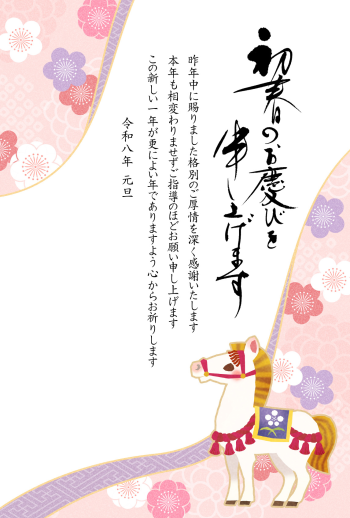 初春のお慶びを
申し上げます
昨年中に賜りました格別のご厚情を深く感謝いたします
本年も相変わりませずご指導のほどお願い申し上げます
この新しい一年が更によい年でありますよう心からお祈りします
令和八年 元旦